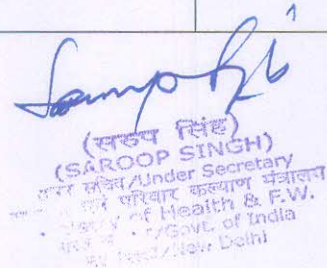 (सरुप सिंह)
(SAROOP SINGH)
सचिव/Under Secretary
परिवार कल्याण मंत्रालय
of Health & F.W.
/Govt. of India
/New Delhi